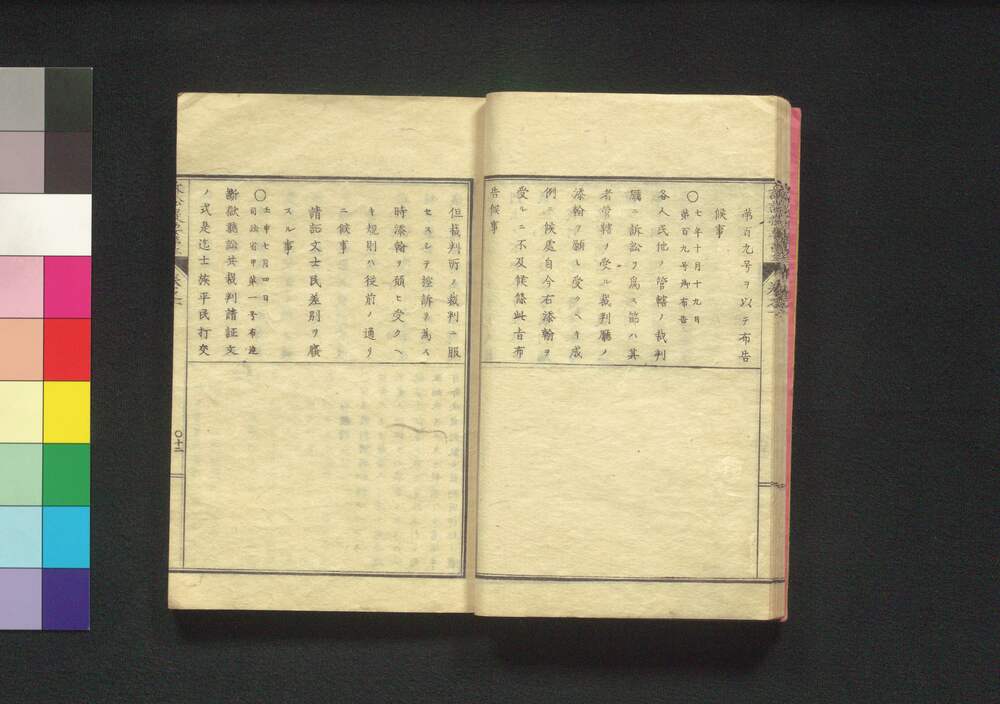 第百九号ヲ以テ布告
候事
〇七年十月十九日
第百九号御布告
各人民他ノ管轄ノ裁判
廳ニ訴訟ヲ爲ス節ハ其
者管轄ヲ受ル裁判廳ノ
添翰ヲ願ヒ受クヘキ成
例ニ候處自今右添翰ヲ
受ルニ不及候條此旨布
告候事
但裁判所ノ裁判ニ服
セスシテ控訴ヲ爲ス
時添翰ヲ願ヒ受クヘ
キ規則ハ從前ノ通リ
ニ候事
請証文士民差別ヲ廢
スル事
〇壬申七月四日
司法省甲第一号布達
斷獄聽訟共裁判請証文
ノ式是迄士族平民打交
〇十二